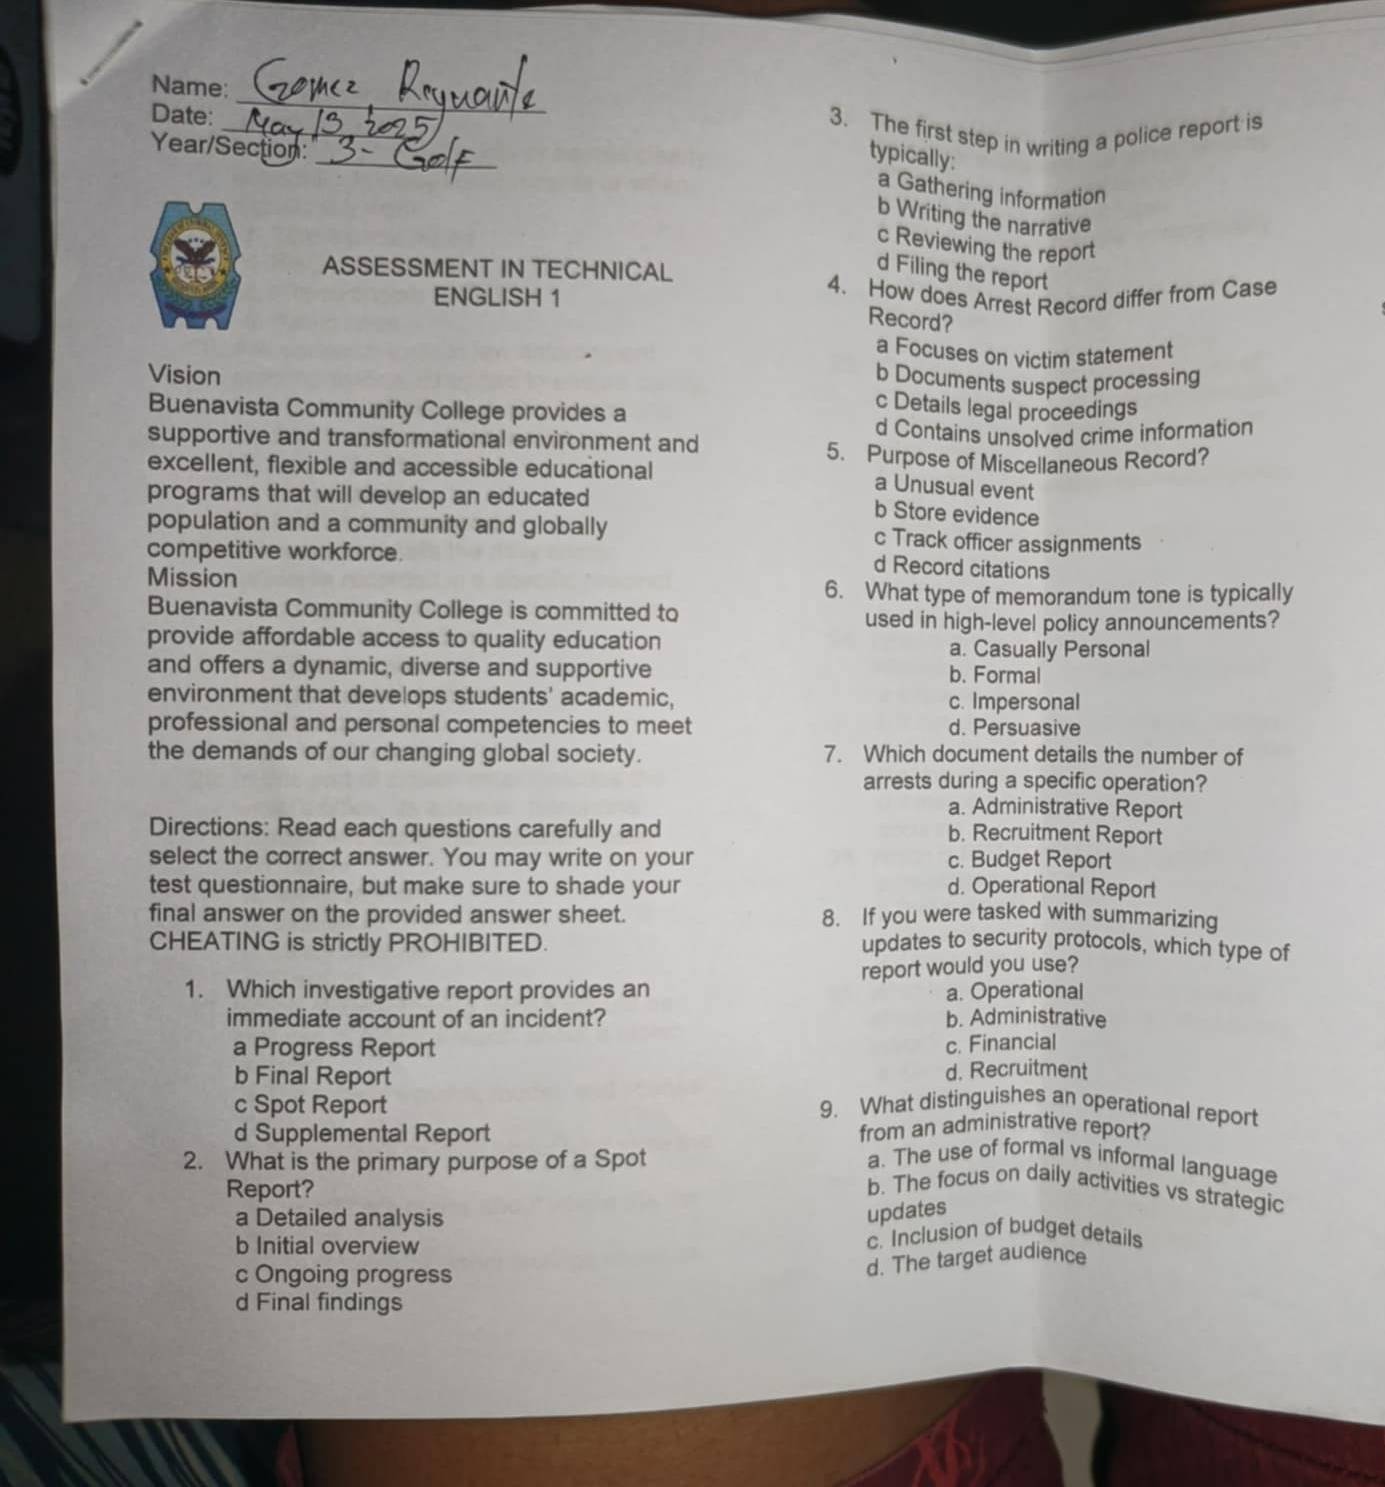 Name: Gomez, Reynante
Date: May 13, 2025
Year/Section: 3- Golf
ASSESSMENT IN TECHNICAL
ENGLISH 1
Vision
Buenavista Community College provides a
supportive and transformational environment and
excellent, flexible and accessible educational
programs that will develop an educated
population and a community and globally
competitive workforce.
Mission
Buenavista Community College is committed to
provide affordable access to quality education
and offers a dynamic, diverse and supportive
environment that develops students' academic,
professional and personal competencies to meet
the demands of our changing global society.
Directions: Read each questions carefully and
select the correct answer. You may write on your
test questionnaire, but make sure to shade your
final answer on the provided answer sheet.
CHEATING is strictly PROHIBITED.
1. Which investigative report provides an
immediate account of an incident?
a Progress Report
b Final Report
c Spot Report
d Supplemental Report
2. What is the primary purpose of a Spot
Report?
a Detailed analysis
b Initial overview
c Ongoing progress
d Final findings
3. The first step in writing a police report is
typically:
a Gathering information
b Writing the narrative
c Reviewing the report
d Filing the report
4. How does Arrest Record differ from Case
Record?
a Focuses on victim statement
b Documents suspect processing
c Details legal proceedings
d Contains unsolved crime information
5. Purpose of Miscellaneous Record?
a Unusual event
b Store evidence
c Track officer assignments
d Record citations
6. What type of memorandum tone is typically
used in high-level policy announcements?
a. Casually Personal
b. Formal
c. Impersonal
d. Persuasive
7. Which document details the number of
arrests during a specific operation?
a. Administrative Report
b. Recruitment Report
c. Budget Report
d. Operational Report
8. If you were tasked with summarizing
updates to security protocols, which type of
report would you use?
a. Operational
b. Administrative
c. Financial
d. Recruitment
9. What distinguishes an operational report
from an administrative report?
a. The use of formal vs informal language
b. The focus on daily activities vs strategic
updates
c. Inclusion of budget details
d. The target audience